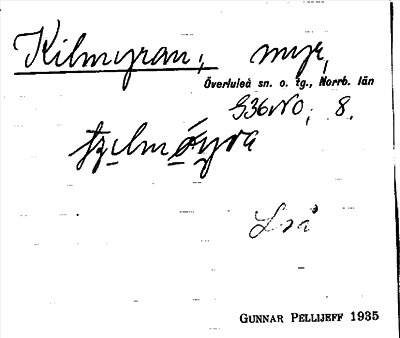 Kilmyran, myr,
Överluleå sn. o. tg., Norrb. län
G36NO; 8.
GUNNAR PELLIJEFF 1935